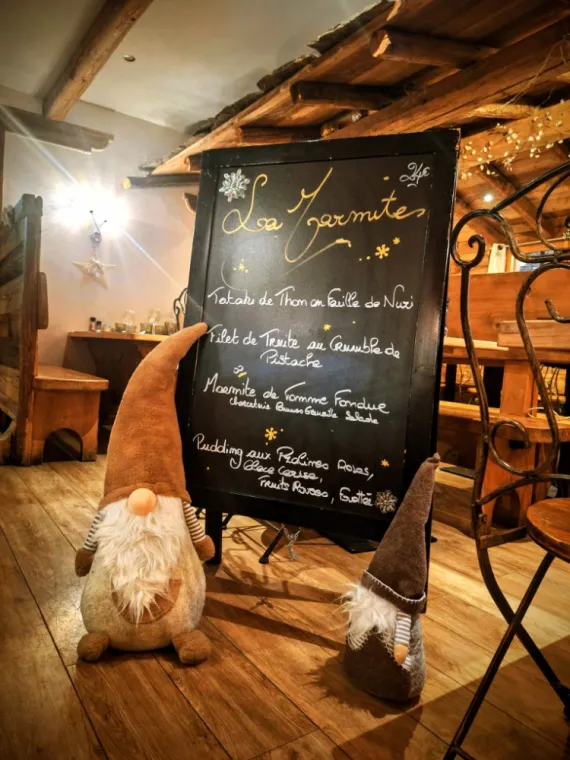 24€
La Marmites
Tataki de Thon en feuille de Nori
Filet de Truite au Crumble de
Pistache
Marmite de Tomme Fondue
Charcuterie Pommes Grenaille Salade
Pudding aux Pralines Roses,
Glace Cerise,
Fruits Rouges,